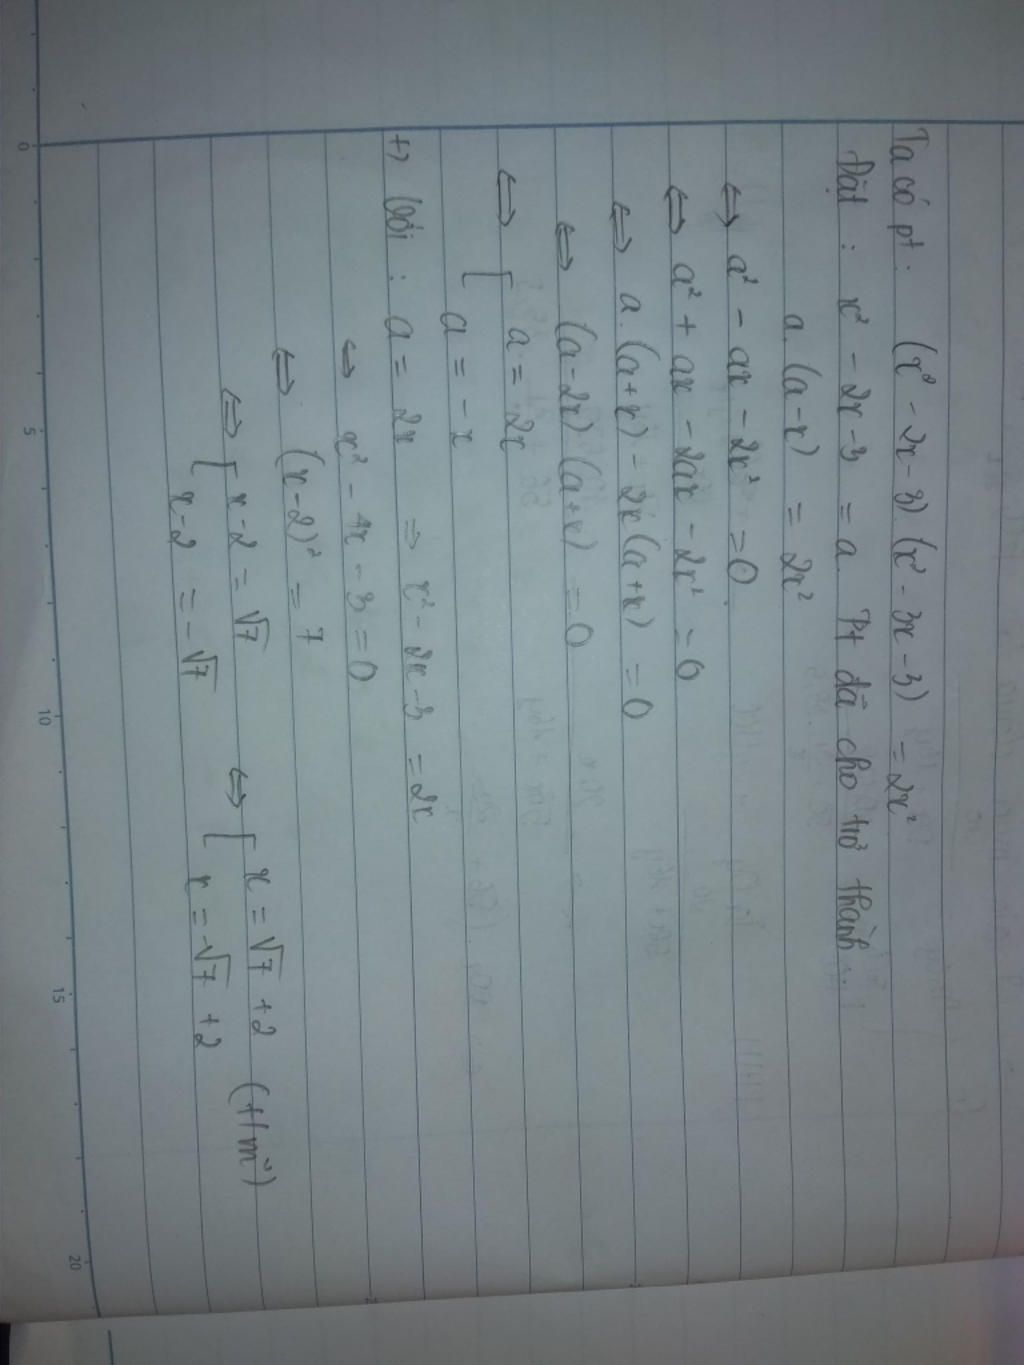 Ta có pt : (x² - 2x - 3).(x² - 3x - 3) = 2x²
Đặt : x² - 2x - 3 = a. Pt đã cho trở thành :
a.(a-x) = 2x²
⇔ a² - ax - 2x² = 0
⇔ a² + ax - 2ax - 2x² = 0
⇔ a.(a+x) - 2x(a+x) = 0
⇔ (a-2x)(a+x) = 0
⇔ [ a = 2x
a = -x
+) Với : a = 2x ⇒ x² - 2x - 3 = 2x
⇔ x² - 4x - 3 = 0
⇔ (x-2)² = 7
⇔ [ x-2 = √7 ⇔ [ x = √7 + 2 (t/m)
x-2 = -√7 x = -√7 + 2
0 5 10 15 20